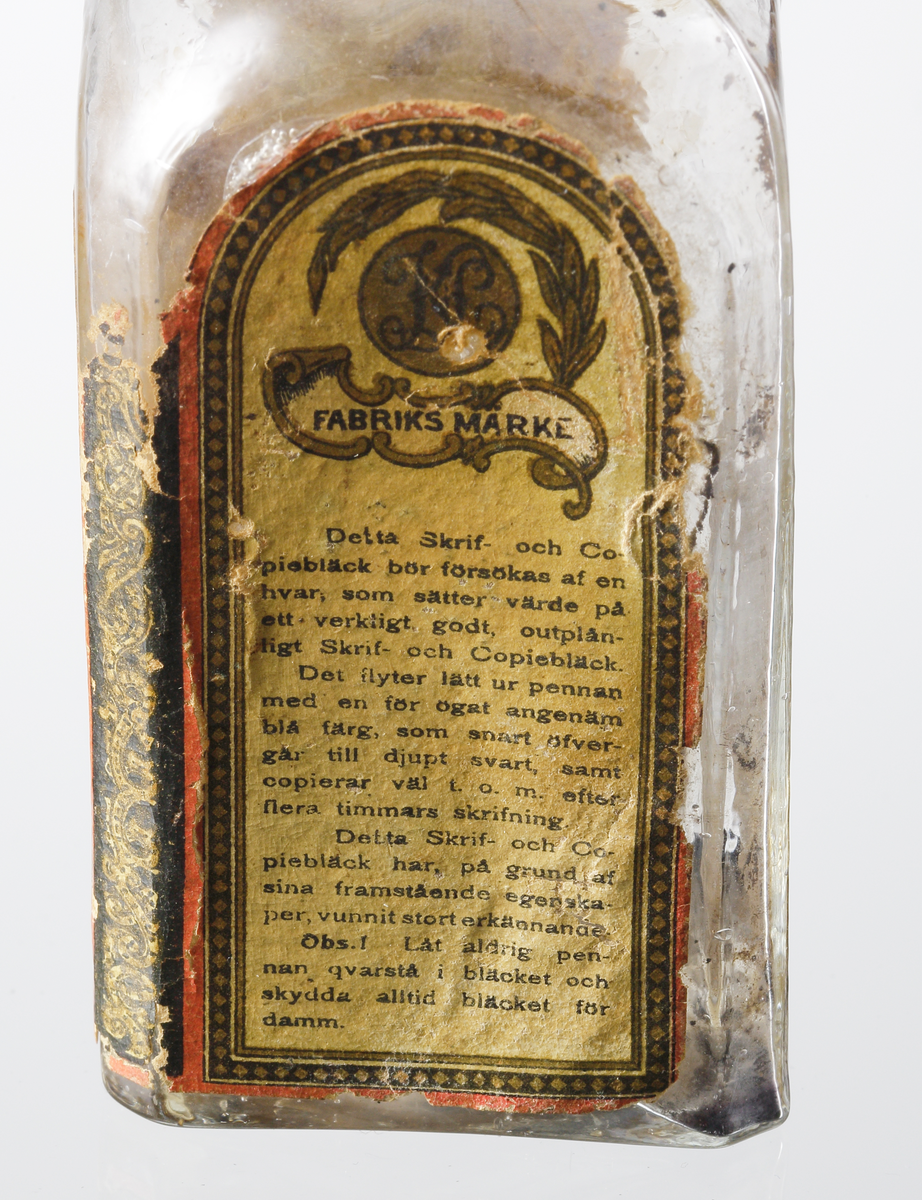 FABRIKS MÄRKE
Detta Skrif- och Co-
piebläck bör försökas af en
hvar, som sätter värde på
ett verkligt godt, outplån-
ligt Skrif- och Copiebläck.
Det flyter lätt ur pennan
med en för ögat angenäm
blå färg, som snart öfver-
går till djupt svart, samt
copierar väl t. o. m. efter
flera timmars skrifning.
Detta Skrif- och Co-
piebläck har, på grund af
sina framstående egenska-
per, vunnit stort erkännande.
Obs.! Låt aldrig pen-
nan qvarstå i bläcket och
skydda alltid bläcket för
damm.